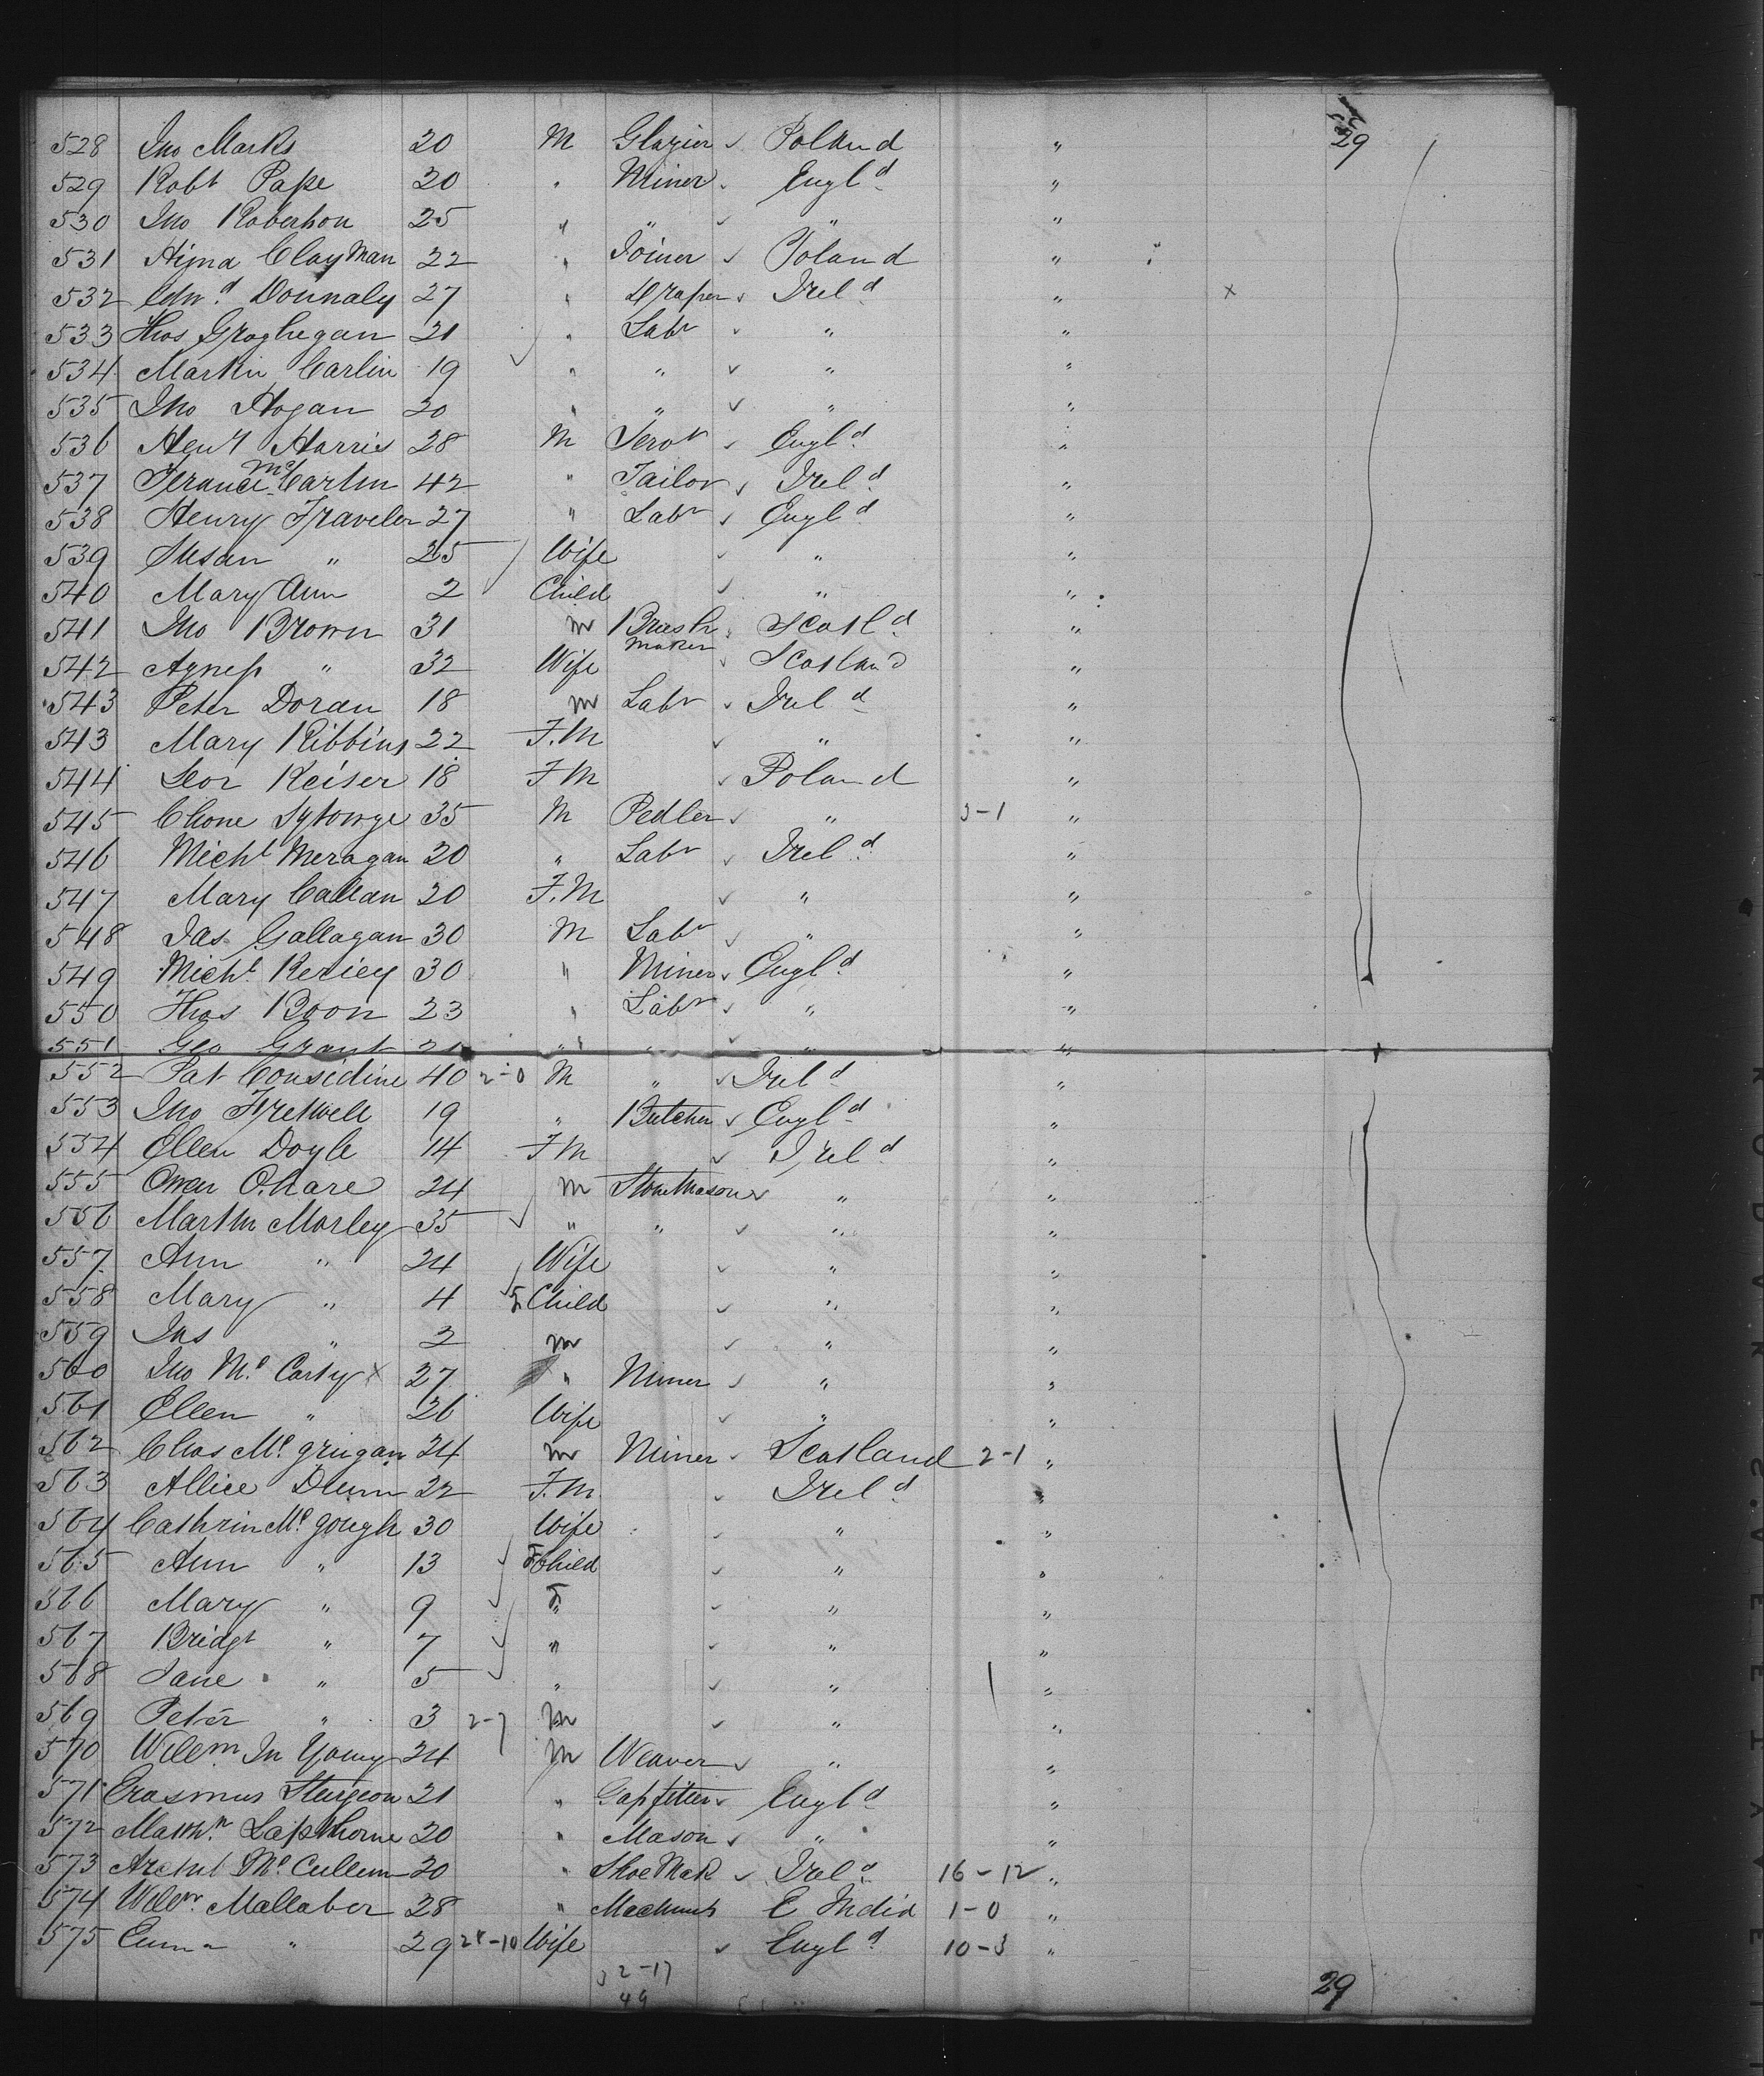 29
528 Jno Marks 20 M Glazier ✓ Poland "
529 Robt Pape 30 " Miner ✓ Engld "
530 Jno Robertson 25 " " ✓ " "
531 Clayman 22 " Joiner ✓ Poland "
532 Edwd Donnaly 27 " Draper ✓ Ireld " x
533 Thos Groghegan 21 " Labr ✓ " "
534 Martin Carlin 19 " " ✓ " "
535 Jno Hogan 20 " " ✓ " "
536 Heny Harris 28 M Servt ✓ Engld "
537 McCartin 42 " Tailor ✓ Ireld "
538 Henry Traveler 27 " Labr ✓ Engld "
539 Susan " 25 Wife ✓ " "
540 Mary Ann 2 Child ✓ " "
541 Jno Brown 31 m Brush Maker ✓ Scotld "
542 Agness " 32 Wife ✓ Scotland "
543 Peter Doran 18 m Labr ✓ Ireld "
543 Mary Ribbins 22 F.M ✓ " "
544 Keiser 18 F M ✓ Poland "
545 Chone 35 M Pedler ✓ " 3-1 "
546 Michl Meragan 20 " Labr ✓ Ireld "
547 Mary Callan 20 F.M ✓ " "
548 Jas Gallagan 30 M Labr ✓ " "
549 Michl 30 " Miner ✓ Engld "
550 Thos Boon 23 " Labr ✓ " "
551 Geo Grant 21 " " ✓ " "
552 Pat Considine 40 2-0 M " ✓ Ireld "
553 Jno Fretwell 19 " Butcher ✓ Engld "
554 Ellen Doyle 14 F M ✓ Ireld "
555 Owen O.hare 24 m Stonemason ✓ " "
556 Martin Morley 35 " " ✓ " "
557 Ann " 24 Wife ✓ " "
558 Mary " 4 F Child ✓ " "
559 Jas " 2 m ✓ " "
560 Jno Mc Carty x 27 " Miner ✓ " "
561 Ellen " 26 Wife ✓ " "
562 Chas Mc grugan 24 m Miner ✓ Scotland 2-1 "
563 Allice Dunn 22 F.m ✓ Ireld "
564 Cathrin Mc gough 30 Wife ✓ " "
565 Ann " 13 F Child ✓ " "
566 Mary " 9 F " ✓ " "
567 Bridgt " 7 " ✓ " "
568 Jane " 5 " ✓ " "
569 Peter " 3 2-7 m ✓ " "
570 Willm Jn Young 24 m Weaver ✓ " "
571 Erasmus Sturgeon 21 " Gasfitter ✓ Engld "
572 Matthw Lapthorne 20 " Mason ✓ " "
573 Mc Cullum 20 " Shoe Mak ✓ Ireld 16-12 "
574 Willm Mallaber 28 " E India 1-0 "
575 Emma " 29 28-10 Wife ✓ Engld 10-3 "
32-17
49
29